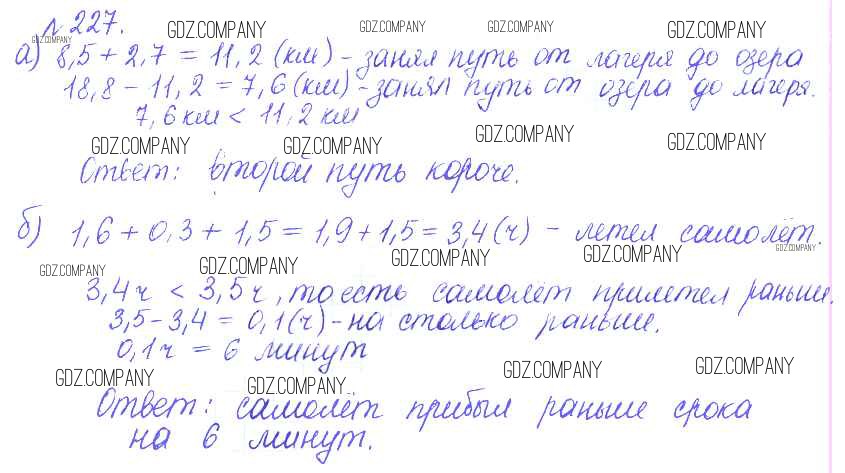 № 227.
GDZ.COMPANY GDZ.COMPANY GDZ.COMPANY GDZ.COMPANY GDZ.COMPANY
а) 8,5 + 2,7 = 11,2 (км) - занял путь от лагеря до озера
18,8 - 11,2 = 7,6 (км) - занял путь от озера до лагеря.
7,6 км < 11,2 км
GDZ.COMPANY GDZ.COMPANY GDZ.COMPANY GDZ.COMPANY
Ответ: второй путь короче.
б) 1,6 + 0,3 + 1,5 = 1,9 + 1,5 = 3,4 (ч) - летел самолёт.
GDZ.COMPANY GDZ.COMPANY GDZ.COMPANY GDZ.COMPANY GDZ.COMPANY
3,4 ч < 3,5 ч, то есть самолёт прилетел раньше.
3,5 - 3,4 = 0,1 (ч) - на столько раньше.
0,1 ч = 6 минут
GDZ.COMPANY GDZ.COMPANY GDZ.COMPANY GDZ.COMPANY
Ответ: самолёт прибыл раньше срока
на 6 минут.